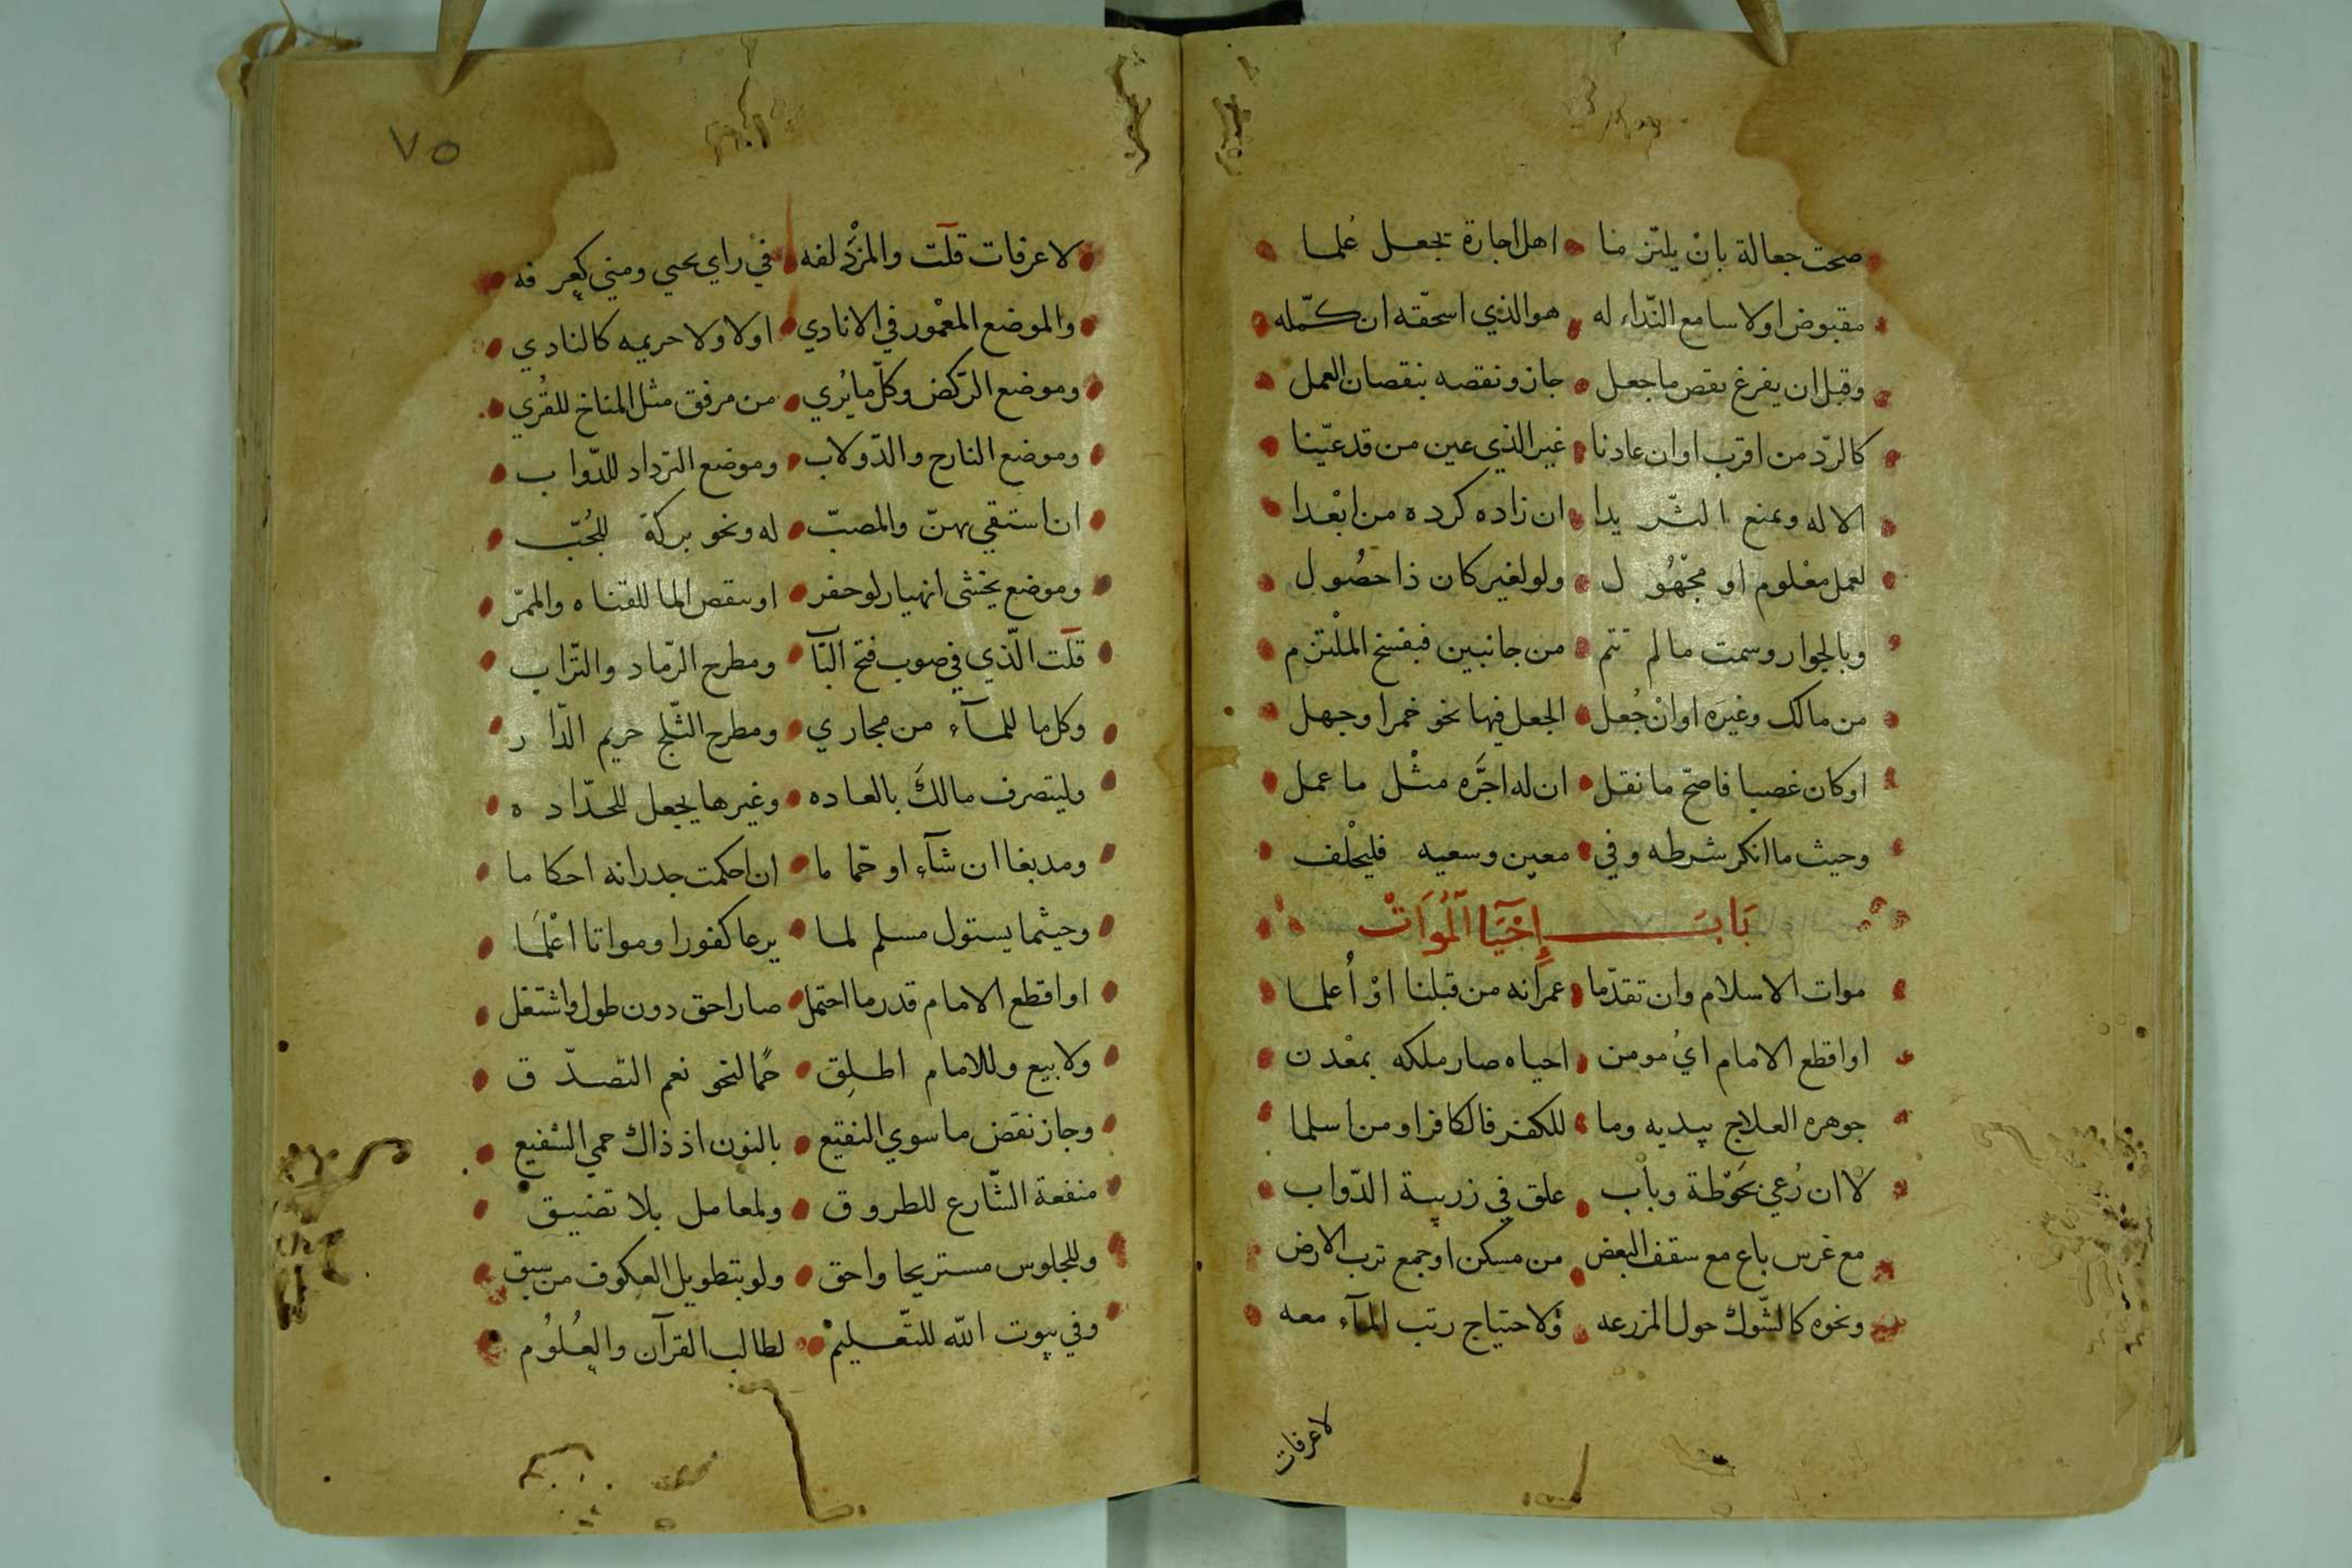 صحت جعالة بان يلتزما اهل اجارة بجعل عُلما
مقبوض اولا سامع النّداء له هو الذي استحقّه ان كمّله
وقبل ان يفرغ نقص ما جعل جاز ونقصه بنقصان العمل
كالردّ من اقرب او ان عادنا غير الذي عين من قد عيّنا
الا له ويمنع الشريدا ان زاده كرده من ابْعدا
لعمل معْلوم او مجْهُول ولو لغير كان ذا حصُول
وبالجوار وسمت ما لم تتم من جانبين فبفسخ الملْتزم
من مالك وغيره او انْ جُعل الجعل فيها نحو خمر او جهل
او كان غصبا فاصحّ ما نقل ان له اجَره مثْل ما عمل
وحيث ما انكر شرطه وفي معين وسعيه فليحْلف
بَابُ إِحْيَا اَلْمُوَاتْ
موات الاسلام وان تقدّما عمرانه من قبلنا اوْ اُعلما
او اقطع الامام ايُ مومن احياه صار ملكه بمعْدن
جوهره العلاج يبديه وما للكفر فالكافر او من اسلما
لا ان رُعي بحَوْطة وباب علق في زريبة الدّواب
مع غرس باع مع سقف البعض من مسكن او جمع ترب الارض
ونحوه كالشّوك حول المزرعه ولاحتياج رتب المآء معه
لا عرفات
٧٥
لا عرفات قلت والمزْدلفه في راي يحيى ومنى كعرفه
والموضع المعْمور في الانادي اولا ولا حريمه كالنادي
وموضع الرّكض وكلّ ما يُري من مرفق مثل المناخ للقُري
وموضع النازح والدّولاب وموضع الترداد للدّواب
ان استقي بهنّ والمصبّ له ونحو بركة للجُبّ
وموضع يخشى انهيار لو حفر او ينقص الما للقناه والممرّ
قلت الّذي في صوب فتح البآ ومطرح الرّماد والتّراب
وكل ما للمآء من مجاري ومطرح الثّلج حريم الدّار
وليتصرف مالكَ بالعاده وغيرها يجعل للحدّاده
ومدبغا ان شآء او حمّاما ان احكمت جدرانه احكاما
وحيثما يستول مسلم لما يرعا كفورا ومواتا اعْلَما
او اقطع الامام قدر ما احتمل صار احق دون طول واشتغل
ولا بيع وللامام اطلِق حمًا لنحو نعم التصدّق
وجاز نقض ما سوي النقيع بالنون اذ ذاك حمي الشفيع
منفعة الشّارع للطروق ولمعامل بلا تضييق
وللجلوس مستريحا واحق ولو بتطويل العكوف من سبق
وفي بيوت الله للتّعليمْ لطالب القرآن والعُلُوم